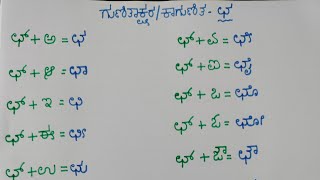 ಗುಣಿತಾಕ್ಷರ/ಕಾಗುಣಿತ - ಛ
ಛ್ + ಅ = ಛ
ಛ್ + ಆ = ಛಾ
ಛ್ + ಇ = ಛಿ
ಛ್ + ಈ = ಛೀ
ಛ್ + ಉ = ಛು
ಛ್ + ಏ = ಛೇ
ಛ್ + ಐ = ಛೈ
ಛ್ + ಒ = ಛೊ
ಛ್ + ಓ = ಛೋ
ಛ್ + ಔ = ಛೌ